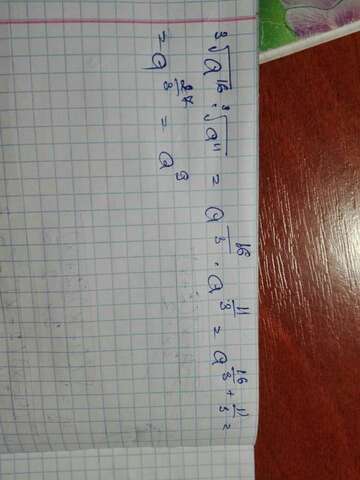 ∛a¹⁶ · ∛a¹¹ = a^(16/3) · a^(11/3) = a^(16/3 + 11/3) =
= a^(27/3) = a⁹